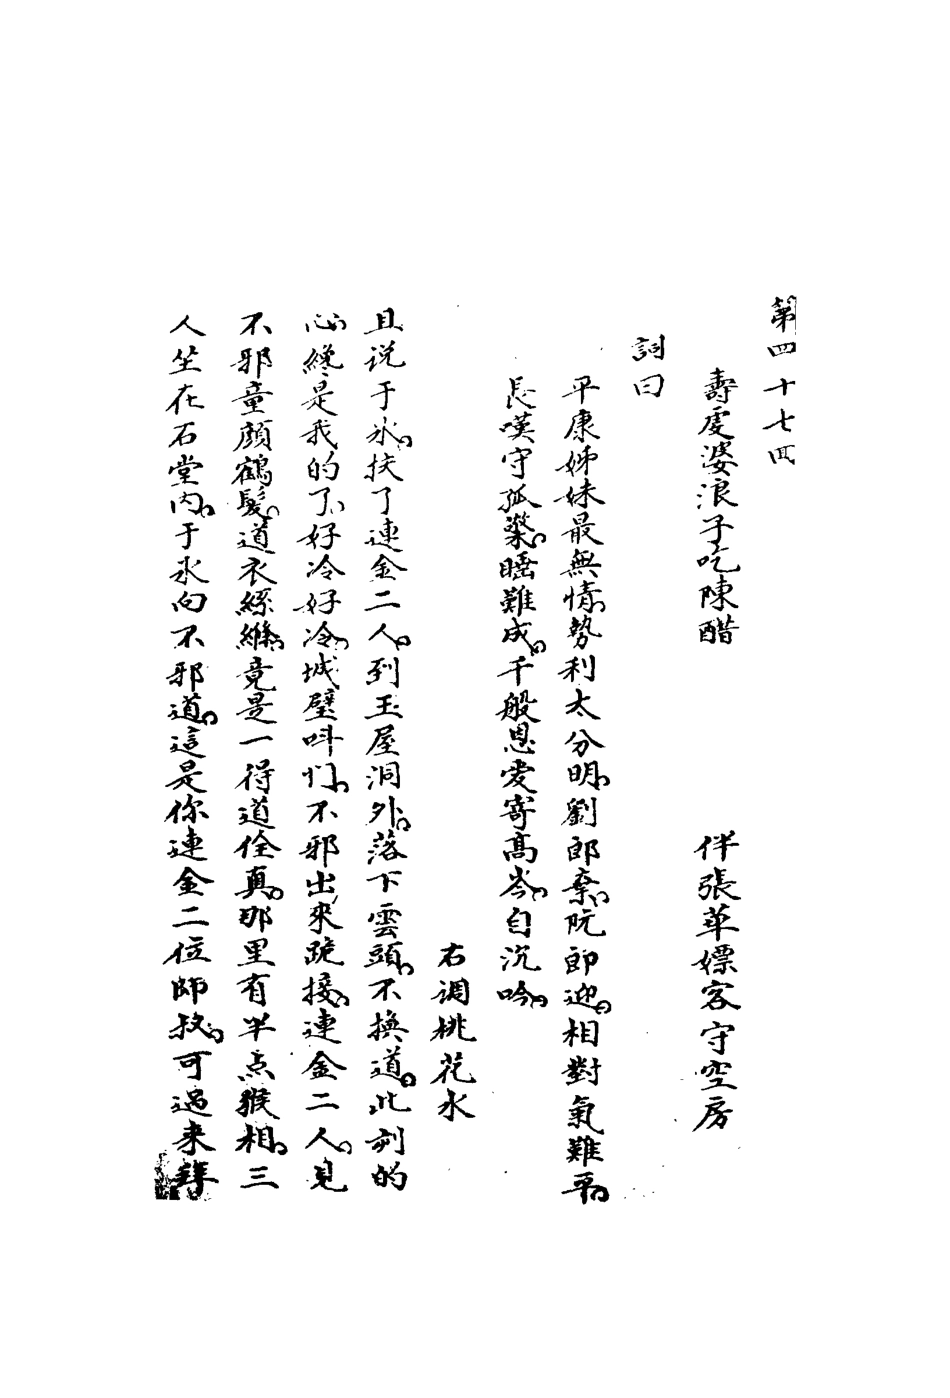 第四十七回
壽虔婆浪子吃陳醋　伴張華嫖客守空房
詞曰
平康姊妹最無情、勢利太分明、劉郎棄、阮郎迎、相對氣難平、
長嘆守孤檠、睡難成、千般恩愛寄高岑、自沉吟、
右调桃花水
且说于氷、扶了連金二人、到玉屋洞外、落下雲頭、不換道、此刻的
心、纔是我的了、好冷好冷、城璧呌门、不邪出來跪接、連金二人、見
不邪童顔鶴髮、道衣絲縧、竟是一得道佺真、那里有半点猴相、三
人坐在石堂内、于氷向不邪道、這是你連金二位師叔、可過来拜